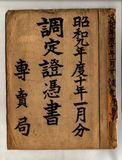 昭和九年度十年一月分
調定證憑書
專賣局